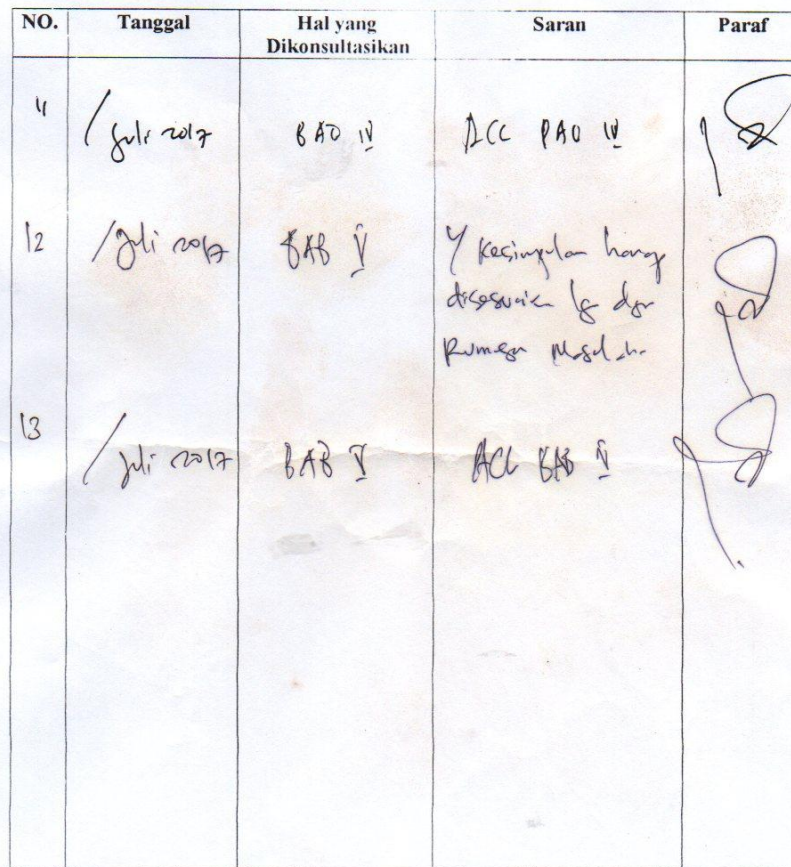 NO. Tanggal Hal yang Dikonsultasikan Saran Paraf
11 / Juli 2017 BAB IV ACC BAB IV
12 / Juli 2017 BAB V Kesimpulan harap
disesuaikan dgn
Rumusan Masalah
13 / Juli 2017 BAB V ACC BAB V